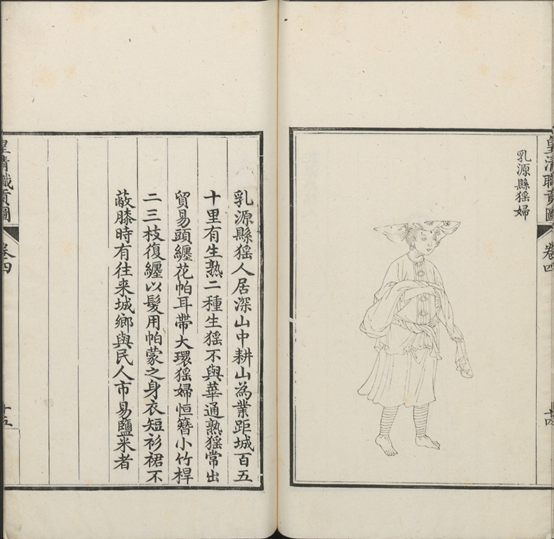 皇清職貢圖
卷四
十四
乳源縣猺婦
乳源縣猺人居深山中耕山為業距城百五
十里有生熟二種生猺不與華通熟猺常出
貿易頭纏花帕耳帶大環猺婦恒簪小竹桿
二三枝復纏以髮用帕蒙之身衣短衫裙不
蔽膝時有往来城鄉與民人市易鹽米者
皇清職貢圖
卷四
十五